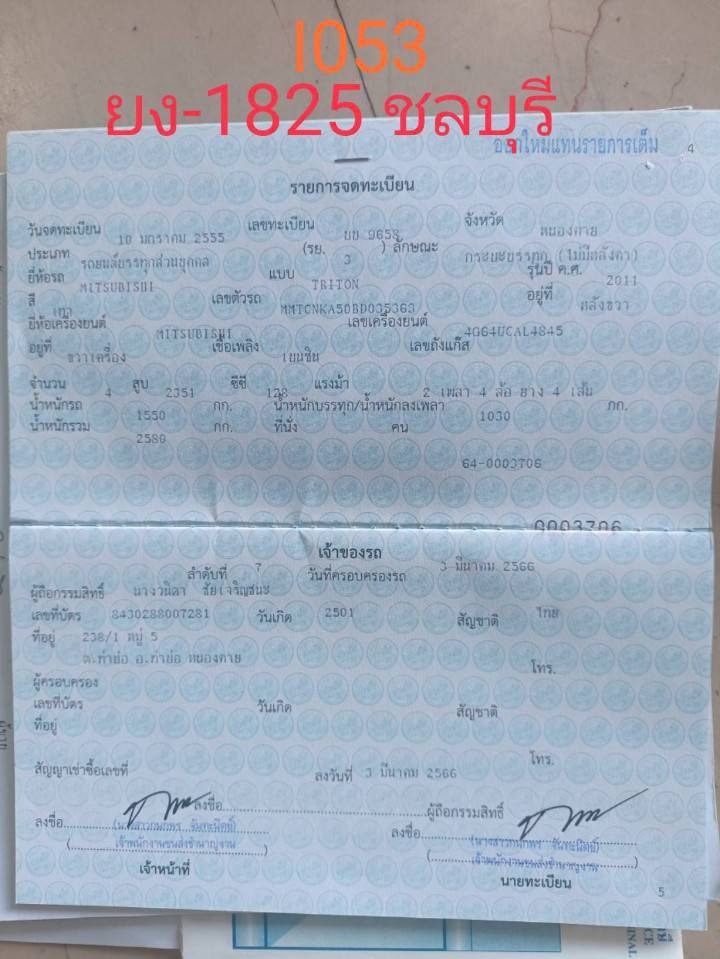 I053
ยง-1825 ชลบุรี
ออกใหม่แทนรายการเต็ม
4
รายการจดทะเบียน
วันจดทะเบียน 10 มกราคม 2555 เลขทะเบียน บบ 9658 จังหวัด หนองคาย
ประเภท รถยนต์บรรทุกส่วนบุคคล (รย. 3 ) ลักษณะ กระบะบรรทุก (ไม่มีหลังคา)
ยี่ห้อรถ MITSUBISHI แบบ TRITON รุ่นปี ค.ศ. 2011
สี เทา เลขตัวรถ MMTCNKA50BD035363 อยู่ที่ หลังขวา
ยี่ห้อเครื่องยนต์ MITSUBISHI เลขเครื่องยนต์ 4G64UCAL4845
อยู่ที่ ขวาเครื่อง เชื้อเพลิง เบนซิน เลขถังแก๊ส
จำนวน 4 สูบ 2351 ซีซี 128 แรงม้า 2 เพลา 4 ล้อ ยาง 4 เส้น
น้ำหนักรถ 1550 กก. น้ำหนักบรรทุก/น้ำหนักลงเพลา 1030 กก.
น้ำหนักรวม 2580 กก. ที่นั่ง คน
64-0003706
0003706
เจ้าของรถ
ลำดับที่ 7 วันที่ครอบครองรถ 3 มีนาคม 2566
ผู้ถือกรรมสิทธิ์ นางวนิดา ชัยเจริญชนะ
เลขที่บัตร 8430288007281 วันเกิด 2501 สัญชาติ ไทย
ที่อยู่ 238/1 หมู่ 5
ต.ท่าบ่อ อ.ท่าบ่อ หนองคาย โทร.
ผู้ครอบครอง
เลขที่บัตร วันเกิด สัญชาติ
ที่อยู่
โทร.
สัญญาเช่าซื้อเลขที่ ลงวันที่ 3 มีนาคม 2566
ลงชื่อ ผู้ถือกรรมสิทธิ์
ลงชื่อ ลงชื่อ
เจ้าพนักงานขนส่งชำนาญงาน
เจ้าพนักงานขนส่งชำนาญงาน
เจ้าหน้าที่ นายทะเบียน
5